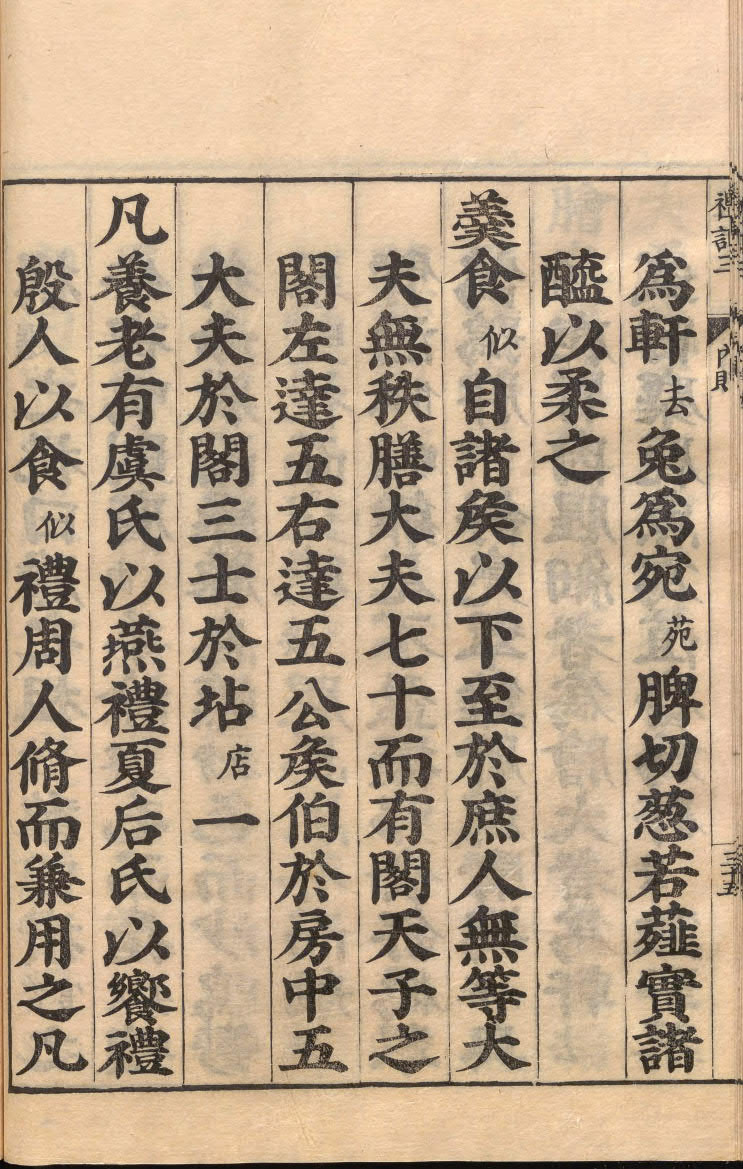 禮記三
內則
三十五
爲軒去兔爲宛苑脾切葱若薤實諸
醯以柔之
羹食似自諸矦以下至於庶人無等大
夫無秩膳大夫七十而有閣天子之
閣左達五右達五公矦伯於房中五
大夫於閣三士於坫店一
凡養老有虞氏以燕禮夏后氏以饗禮
殷人以食似禮周人脩而兼用之凡